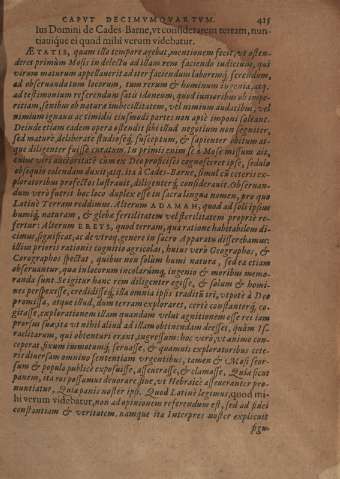 CAPVT DECIMVMQVARTVM. 425
Ius Domini de Cades-Barne, vt considerarem terram, nun-
tiauique ei quod mihi verum videbatur.
ÆTATIS, quam illo tempore agebat, mentionem fecit, vt osten-
deret primùm Mosis in delectu ad illam rem faciendo iudicium, qui
virum maturum appellauerit ad iter faciendum laboremq́; ferendum,
ad obseruandum locorum, tum rerum & hominum ingenia, atq́;
ad testimonium referendum fide idoneum, quod iunioribus ob impe-
ritiam, senibus ob naturæ imbecillitatem, vel nimium audacibus, vel
nimium ignauis ac timidis eiusmodi partes non aptè imponi soleant.
Deinde etiam eadem opera ostendit sibi illud negotium non segniter,
sed maturè, deliberatè studioseq́; susceptum, & sapienter obitum at-
que diligenter fuisse curatum. In primis enim se à Mose missum ait,
cuius viri auctoritatē cum ex Deo proficisci cognosceret ipse, sedulo
obsequio eandem
atq́; ita à Cades-Barne, simul cū ceteris ex-
ploratoribus profectus lustrauit, diligenterq́; considerauit. Obseruan-
dum verò futrit hoc loco duplex esse in sacra lingua nomen, pro quo
Latinè Terram reddimus. Alterum ADAMAH, quod ad soli ipsius
humiq́; naturam, & glebæ fertilitatem vel sterilitatem propriè re-
fertur: Alterum ERETS, quod terram, qua ratione habitabilem di-
cimus, significat, ac de vtroq́; genere in sacro Apparatu disserebamus:
illius prioris rationis cognitio agricolas, huius verò Geographos, &
Corographos spectat, quibus non solum humi natura, sed ea etiam
obseruantur, qua in locorum incolarumq́; ingenio & moribus memo-
randa sunt. Se igitur hanc rem diligenter egisse, & solum & homi-
nes perspexisse, credidisseq́; illa omnia ipsis traditū iri, vtpote à Deo
promissa, atque illud, dum terram exploraret, certè constanterq́; co-
gitasse, explorationem illam quandam velut agnitionem esse rei iam
propriæ suæ, ita vt nihil aliud ad illam obtinendam deesset, quàm Is-
raelitarum, qui obtenturi erant, ingressum: hoc verò, vt animo con-
ceperat, fixum immotumq́; seruasse, & quamuis exploratoribus cete-
ris diuersam omnino sententiam vrgentibus, tamen & Mosi seor-
sum & populo publicè exposuisse, asseuerasse, & clamasse, Quia sicut
panem, ita eos possumus deuorare siue, vt Hebraicè asseueranter pro-
nuntiatur, Quia panis noster ipsi. Quod Latinè legimus, quod mi-
hi verum videbatur, non ad opinionem referendum est, sed ad fidei
constantiam & veritatem, namque ita Interpres noster explicuit